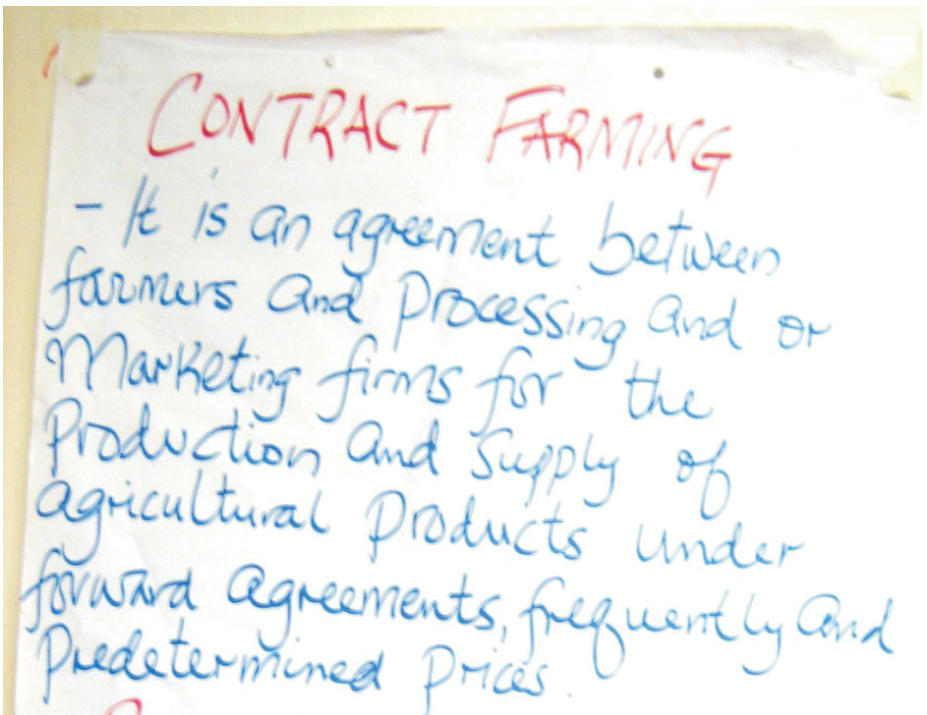 CONTRACT FARMING
- It is an agreement between
farmers and processing and or
Marketing firms for the
production and supply of
agricultural products under
forward agreements, frequently and
predetermined prices.